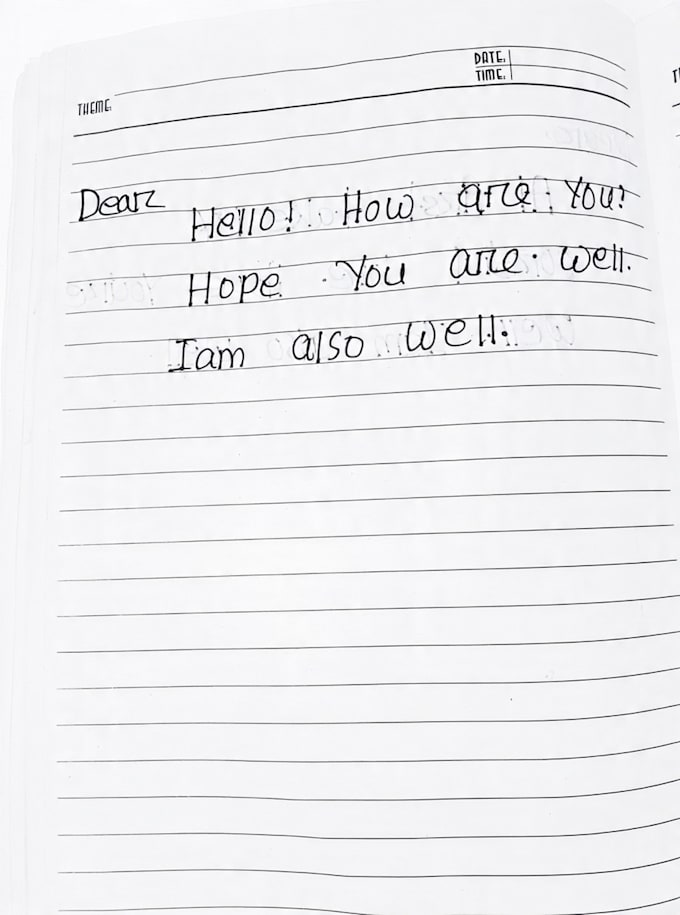 DATE:
TIME:
THEME:
Dear
Hello! How are You?
Hope You are well.
I am also well.